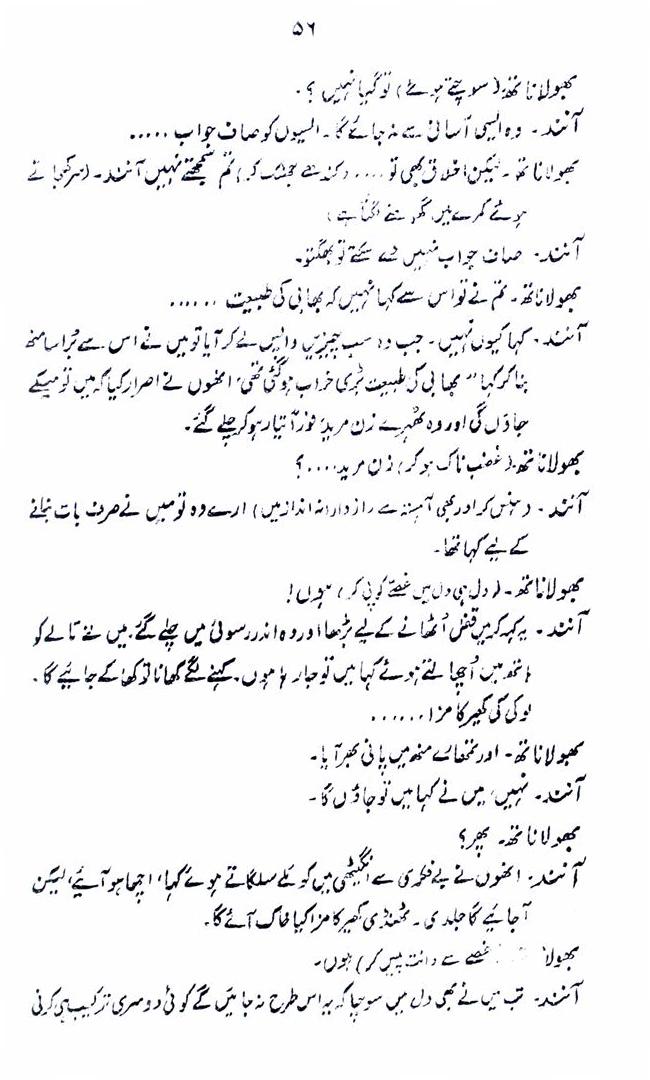 ۵۶
بھولا ناتھ۔ (سوچتے ہوئے) تو گیا نہیں ؟۔
آنند۔ وہ ایسی آسانی سے نہ جائے گا۔ ایسوں کو صاف جواب .....
بھولا ناتھ۔ لیکن اخلاق بھی تو .... (کندھے جھٹک کر) تم سمجھتے نہیں آنند۔ (سر کھجاتے
ہوئے کمرے میں گھومنے لگتا ہے)
آنند۔ صاف جواب نہیں دے سکتے تو بھگتو۔
بھولا ناتھ۔ تم نے تو اس سے کہا نہیں کہ بھابی کی طبیعت ......
آنند۔ کہا کیوں نہیں۔ جب وہ سب چیزیں واپس لے کر آیا تو میں نے اس سے بُرا سا منھ
بنا کر کہا " بھابی کی طبیعت بڑی خراب ہوگئی تھی، انھوں نے اصرار کیا کہ میں تو میکے
جاؤں گی اور وہ ٹھہرے زن مرید فوراً تیار ہو کر چلے گئے۔
بھولا ناتھ۔ (غضب ناک ہو کر) زن مرید .... ؟
آنند۔ (ہنس کر اور بھی آہستہ سے رازدارانہ انداز میں) ارے وہ تو میں نے صرف بات بنانے
کے لیے کہا تھا۔
بھولا ناتھ۔ (دل ہی دل میں غصے کو پی کر) ہوں !
آنند۔ یہ کہہ کر میں قفل اُٹھانے کے لیے بڑھا اور وہ اندر رسوئی میں چلے گئے۔ میں نے تالے کو
ہاتھ میں اُچھالتے ہوئے کہا میں تو جا رہا ہوں۔ کہنے لگے کھانا تو کھا کے جائیے گا۔
لوکی کی کھیر کا مزا ......
بھولا ناتھ۔ اور تمھارے منھ میں پانی بھر آیا۔
آنند۔ نہیں، میں نے کہا میں تو جاؤں گا۔
بھولا ناتھ۔ پھر؟
آنند۔ انھوں نے بے فکری سے انگیٹھی میں کوئلے سلگاتے ہوئے کہا، اچھا ہو آیئے، لیکن
آ جایئے گا جلدی۔ ٹھنڈی کھیر کا مزا کیا خاک آئے گا۔
بھولا غصے سے دانت پیس کر) ہوں۔
آنند۔ تب میں نے بھی دل میں سوچا کہ یہ اس طرح نہ جائیں گے کوئی دوسری ترکیب ہی کرنی